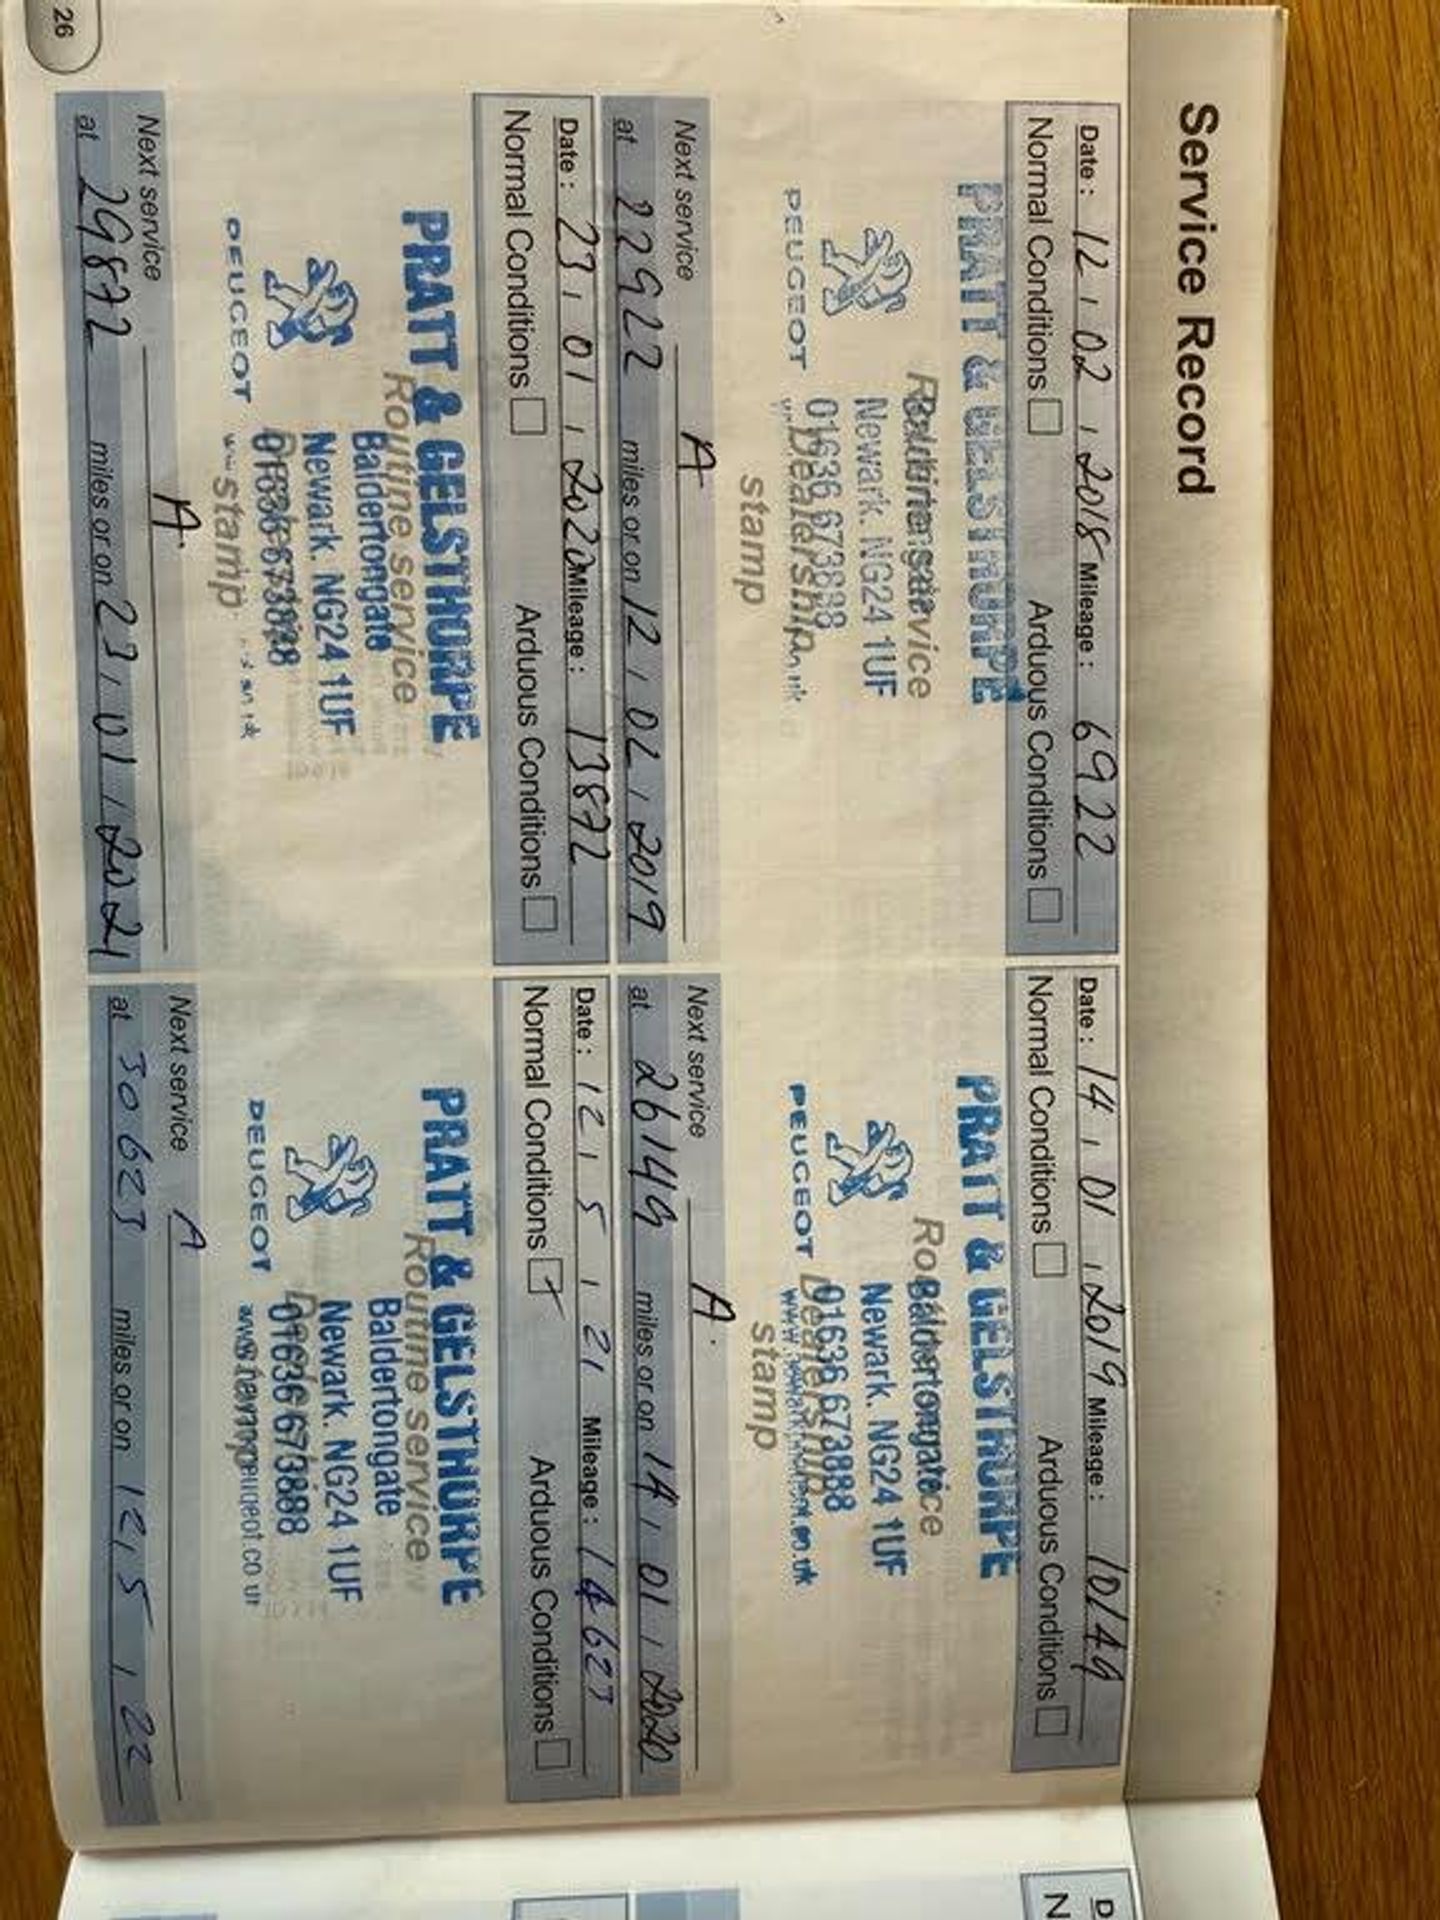 Service Record
Date : 12 , 02 , 2018 Mileage : 6922
Normal Conditions Arduous Conditions
PRATT & GELSTHORPE
Routine service
Baldertongate
Newark. NG24 1UF
01636 673888
Dealership
PEUGEOT
stamp
Next service A
at 22922 miles or on 12 , 02 , 2019
Date : 14 , 01 , 2019 Mileage : 10149
Normal Conditions Arduous Conditions
PRATT & GELSTHORPE
Routine service
Baldertongate
Newark. NG24 1UF
01636 673888
Dealership
PEUGEOT
stamp
Next service A.
at 26149 miles or on 14 , 01 , 2020
Date : 23 , 01 , 2020 Mileage : 13872
Normal Conditions Arduous Conditions
PRATT & GELSTHORPE
Routine service
Baldertongate
Newark. NG24 1UF
01636 673888
PEUGEOT
stamp
Next service A.
at 29872 miles or on 23 , 01 , 2021
Date : 12 , 5 , 21 Mileage : 14623
Normal Conditions Arduous Conditions
PRATT & GELSTHORPE
Routine service
Baldertongate
Newark. NG24 1UF
01636 673888
PEUGEOT
Next service A
at 30623 miles or on 12 , 5 , 22
26
D
N